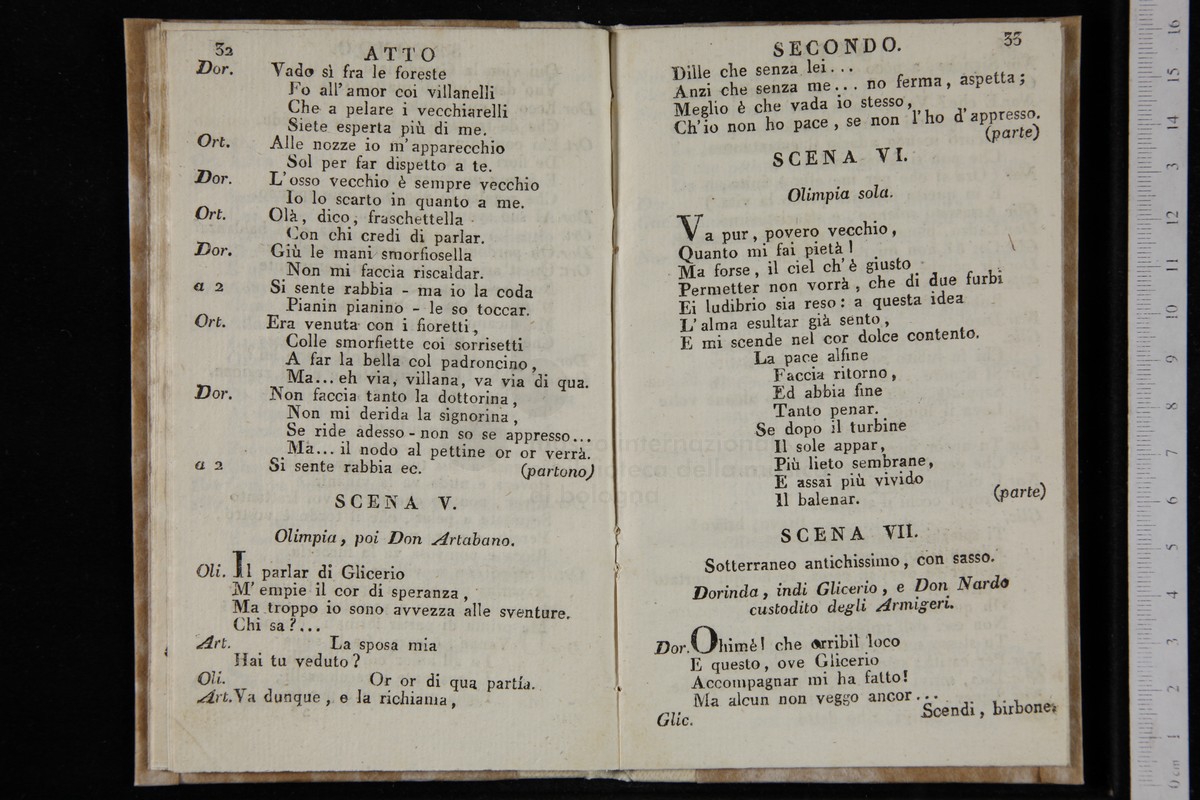 32
ATTO
Dor. Vado sì fra le foreste
Fo all' amor coi villanelli
Che a pelare i vecchiarelli
Siete esperta più di me.
Ort. Alle nozze io m' apparecchio
Sol per far dispetto a te.
Dor. L' osso vecchio è sempre vecchio
Io lo scarto in quanto a me.
Ort. Olà, dico, fraschettella
Con chi credi di parlar.
Dor. Giù le mani smorfiosella
Non mi faccia riscaldar.
a 2 Si sente rabbia - ma io la coda
Pianin pianino - le so toccar.
Ort. Era venuta con i fioretti,
Colle smorfiette coi sorrisetti
A far la bella col padroncino,
Ma... eh via, villana, va via di qua.
Dor. Non faccia tanto la dottorina,
Non mi derida la signorina,
Se ride adesso - non so se appresso...
Ma... il nodo al pettine or or verrà.
a 2 Si sente rabbia ec. (partono)
SCENA V.
Olimpia, poi Don Artabano.
Oli. Il parlar di Glicerio
M' empie il cor di speranza,
Ma troppo io sono avvezza alle sventure.
Chi sa?...
Art. La sposa mia
Hai tu veduto?
Oli. Or or di qua partía.
Art. Va dunque, e la richiama,
SECONDO.
33
Dille che senza lei...
Anzi che senza me... no ferma, aspetta;
Meglio è che vada io stesso,
Ch' io non ho pace, se non l' ho d' appresso.
(parte)
SCENA VI.
Olimpia sola.
Va pur, povero vecchio,
Quanto mi fai pietà!
Ma forse, il ciel ch' è giusto
Permetter non vorrà, che di due furbi
Ei ludibrio sia reso: a questa idea
L' alma esultar già sento,
E mi scende nel cor dolce contento.
La pace alfine
Faccia ritorno,
Ed abbia fine
Tanto penar.
Se dopo il turbine
Il sole appar,
Più lieto sembrane,
E assai più vivido
Il balenar. (parte)
SCENA VII.
Sotterraneo antichissimo, con sasso.
Dorinda, indi Glicerio, e Don Nardo
custodito degli Armigeri.
Dor. Ohimè! che orribil loco
E questo, ove Glicerio
Accompagnar mi ha fatto!
Ma alcun non veggo ancor...
Glic. Scendi, birbone.